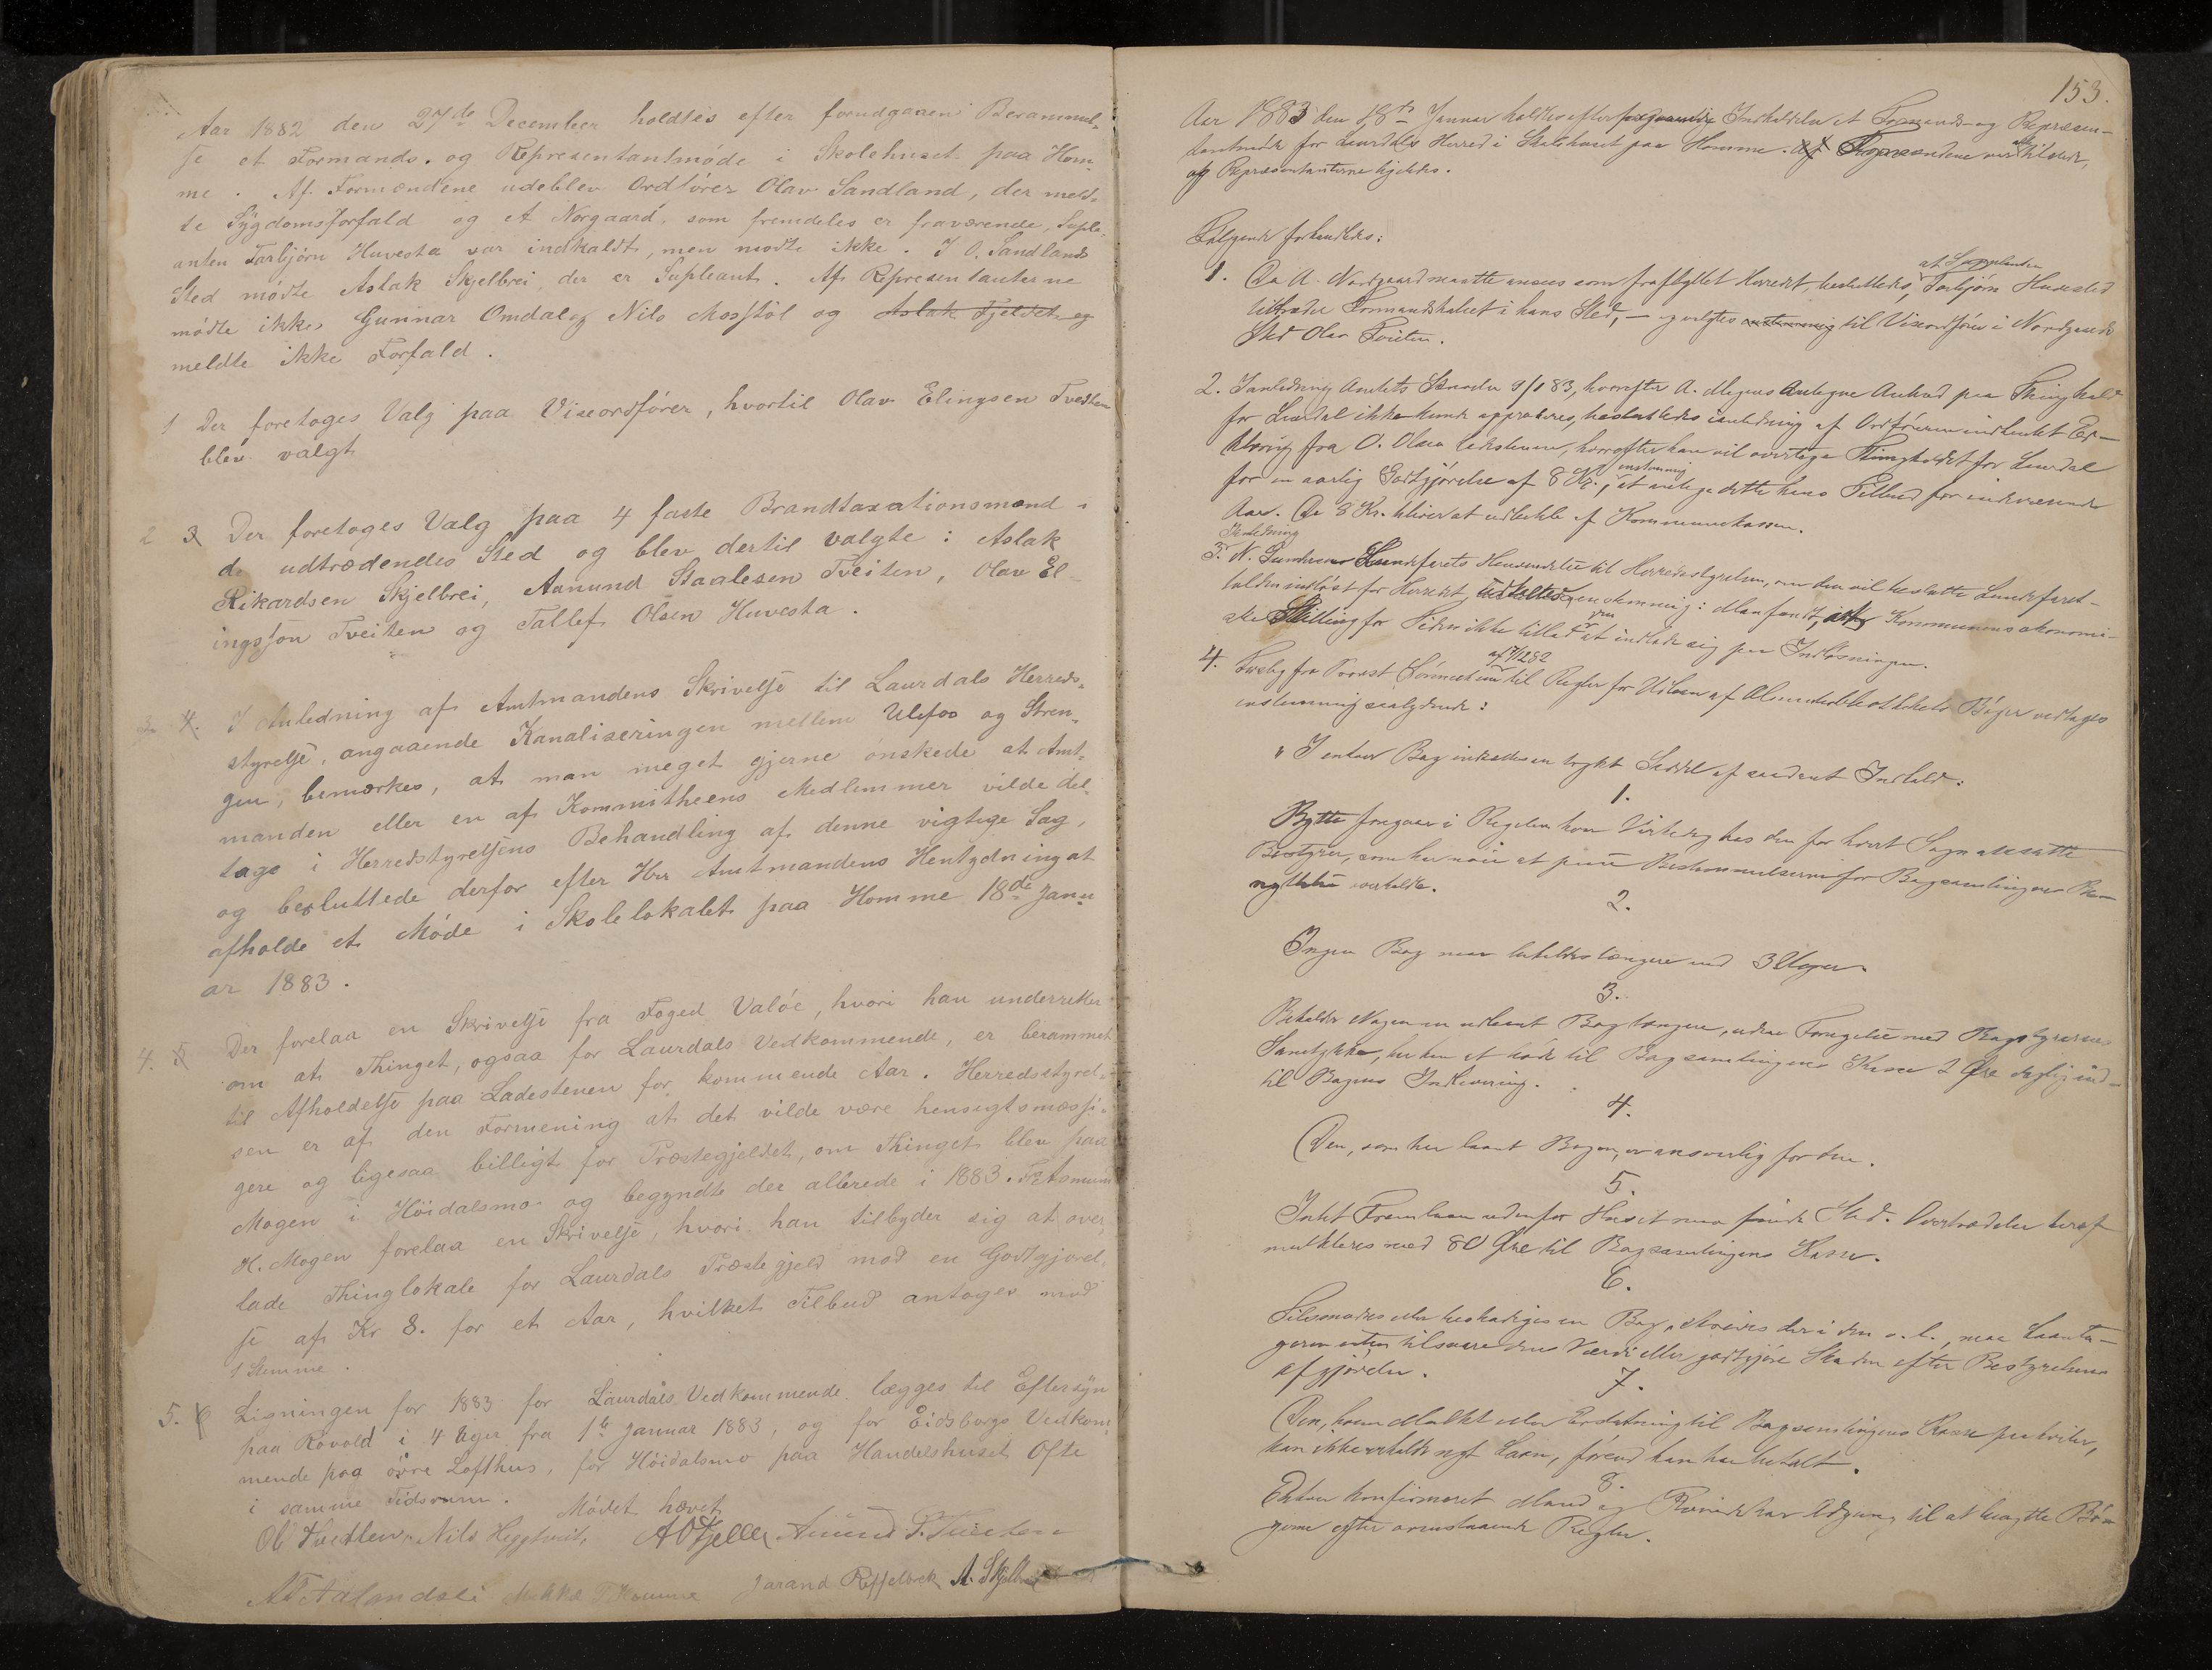 Aar 1882 den 27de December holdtes efter forudgaaen Berammel-
se et Formands. og Representantmøde i Skolehuset paa Hom-
me. Af Formændene udeblev Ordfører Olav Sandland, der meld-
te Sygdomsforfald og A Norgaard, som fremdeles er fraværende, Suple-
anten Tarbjørn Huvesta var indkaldt, men mødte ikke. I O. Sandlands
Sted mødte Aslak Skjelbrei, der er Supleant. Af Representanterne
mødte ikke Gunnar Omdal og Nils Mosstøl og Aslak Fjeldet og
meldte ikke Forfald.
1 Der foretoges Valg paa Viseordfører, hvortil Olav Elingsen Tvedten
blev valgt
2 3 Der foretoges Valg paa 4 faste Brandtaxationsmænd i
de udtrædendes Sted og blev dertil valgte: Aslak
Rikardsen Skjelbrei, Aanund Staalesen Tveiten, Olav El-
ingssøn Tveiten og Tallef Olsen Huvesta.
3. 4. I Anledning af Amtmandens Skrivelse til Laurdals Herreds-
styrelse, angaaende Kanaliseringen mellem Ulefos og Stren-
gen, bemærkes, at man meget gjerne ønskede at Amt-
manden eller en af Kommitheens Medlemmer vilde del-
tage i Herredstyrelsens Behandling af denne vigtige Sag,
og besluttede derfor efter Hr Amtmandens Hentydning at
afholde et Møde i Skolelokalet paa Homme 18de Janu
ar 1883.
4. 5 Der forelaa en Skrivelse fra Foged Valøe, hvori han underretter
om at Thinget, ogsaa for Laurdals Vedkommende, er berammet
til Afholdelse paa Ladestenen for kommende Aar. Herredsstyrel-
sen er af den Formening at det vilde være hensigtsmæssi-
gere og ligesaa billigt for Præstegjeldet, om Thinget blev paa
Mogen i Høidalsmo og begyndte der allerede i 1883. Fra Asmund
H. Mogen forelaa en Skrivelse, hvori han tilbyder sig at over-
lade Thinglokale for Laurdals Præstegjeld mod en Godtgjørel-
se af Kr 8. for et Aar, hvilket Tilbud antoges mod
1 Stemme.
5. 6 Ligningen for 1883 for Laurdals Vedkommende lægges til Eftersyn
paa Rovold i 4 Uger fra 1te Januar 1883, og for Eidsborgs Vedkom
mende paa øvre Lofthus, for Høidalsmo paa Handelshuset Ofte
i samme Tidsrum. Mødet hævet
Ol Tvedten, Nils Heggtveit, A O Fjelle, Anund S. Tveiten
Jarand Reffelbrek A. Skjelbrei
153.
Aar 1883 den 18de Januar holdtes efter foregaaende Indkaldelse et Formands- og Repræsen-
tantmøde for Laurdals Herred i Skolehuset paa Homme. Af Formændene var alle tilstede,
af Repræsentanterne ligeledes.
Følgende forhandledes:
1. Da A. Nordgaard maatte ansees som fraflyttet Herredet, besluttedes, at Supplanten Torbjørn Huvestad
tiltræder Formandskabet i hans Sted, – og valgtes enstemmig til Viseordfører i Nordgaards
Sted Olav Tveiten.
2. I anledning Amtets Skrivelse 9/1 83, hvorefter A. Mogens Anbud paa Thinghold
for Laurdal ikke kunde approberes, besluttedes i anledning af Ordføreren indhentet Er-
klæring fra O. Olsen Ladestenen, hvorefter han vil overtage Thingholdet for Laurdal
for en aarlig Godtgjørelse af 8 Kr., enstemmig at antage dette hans Tilbud for indeværende
Aar. De 8 Kr. bliver at udbetale af Kommunekassen.
3. I anledning N. Lundefarets Henvendelse til Herredsstyrelsen, om den vil beslutte Lundefaret-
indløst for Herredet, enstemmig: Man fandt, at Kommunens økonomi-
ske Stilling for Tiden ikke tillod den at indlade sig paa Indløsningen.
4. Forslag fra Provst Sønnesen af 7/12 82 til Regler for Udlaan af Almuebibliothekets Bøger vedtoges
enstemmig saalydende:
"I enhver Bog indsættes en trykt Seddel af saadant Indhold:
1.
Bytte foregaar i Regelen hver Virkedag hos den for hvert Sogn ansatte
Bestyrer, som har nøie at paase Bestemmelserne for Bogsamlingens Be-
nyttelse overholdte.
2.
Ingen Bog maa beholdes længere end 3 Uger.
3.
Beholder Nogen en udlaant Bog længere, uden Foregelse med Bogstyrerens
Samtykke, har han at bøde til Bogsamlingens Kasse 2 Øre daglig ind-
til Bogens Indlevering.
4.
Den, som har laant Bogen, er ansvarlig for den.
5.
Intet Fremlaan udenfor Huset maa finde Sted. Overtrædelse heraf
mulkteres med 80 Øre til Bogsamlingens Kasse.
6.
Tilsmudses eller beskadiges en Bog, skrives der i den o. l., maa Laanta-
geren enten tilsvare dens Værdi eller godtgjøre Skaden efter Bestyrelsens
afgjørelse.
7.
Den, hvem Mulkt eller Erstatning til Bogsamlingens Kasse paahviler,
kan ikke erholde nyt Laan, førend han har betalt.
8.
Enhver konfirmeret Mand og Kvinde har Adgang til at benytte Bø-
gerne efter ovenstaaende Regler.